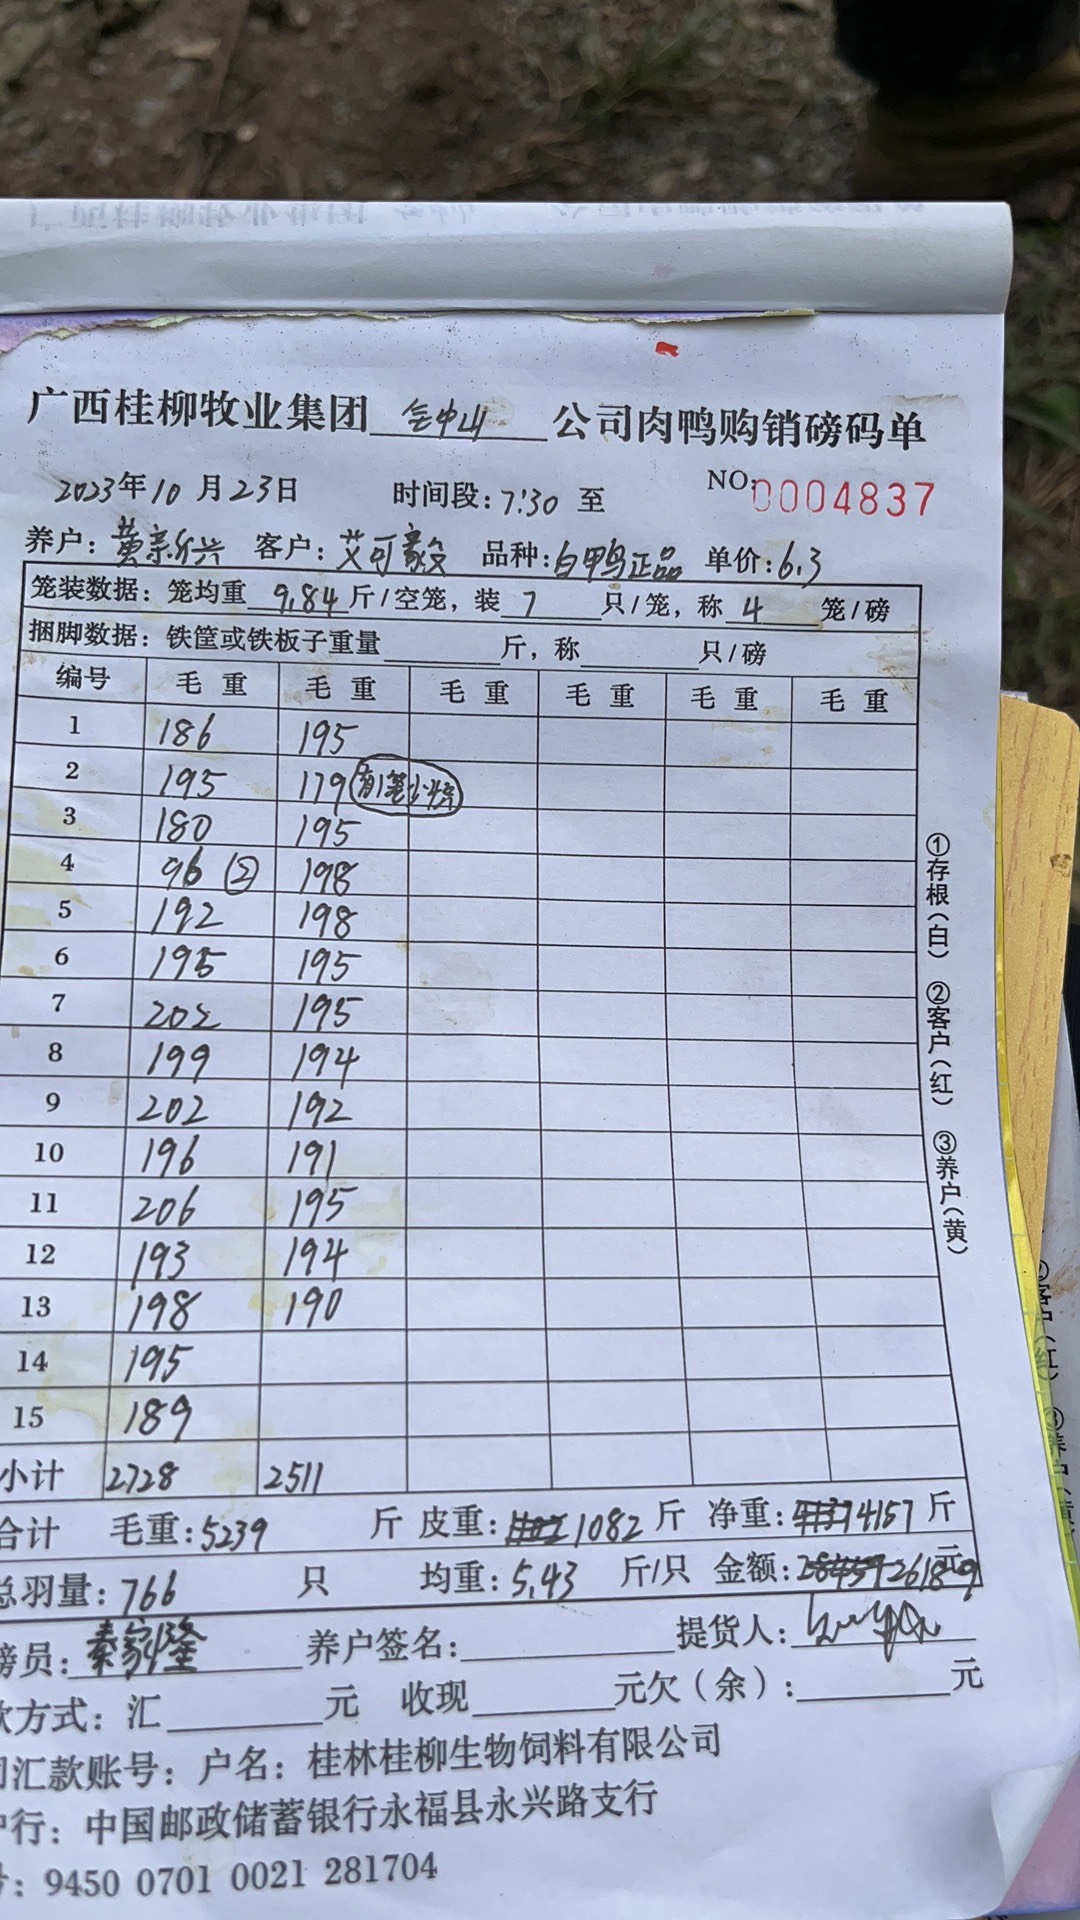 广西桂柳牧业集团 钟山 公司肉鸭购销磅码单
2023年10月23日 时间段:7:30 至 NO:0004837
养户:黄新兴 客户:艾可毅 品种:白鸭正品 单价:6.3
笼装数据:笼均重 9.84 斤/空笼,装 7 只/笼,称 4 笼/磅
捆脚数据:铁筐或铁板子重量 斤,称 只/磅
编号 毛重 毛重 毛重 毛重 毛重 毛重
1 186 195
2 195 179
3 180 195
4 96 ② 198
5 192 198
6 195 195
7 202 195
8 199 194
9 202 192
10 196 191
11 206 195
12 193 194
13 198 190
14 195
15 189
小计 2728 2511
合计 毛重:5239 斤 皮重: 1082 斤 净重: 4157 斤
总羽量:766 只 均重:5.43 斤/只 金额: 26189 元
磅员:秦家隆 养户签名: 提货人:
款方式:汇 元 收现 元欠(余): 元
司汇款账号:户名:桂林桂柳生物饲料有限公司
户行:中国邮政储蓄银行永福县永兴路支行
号:9450 0701 0021 281704
①存根(白) ②客户(红) ③养户(黄)